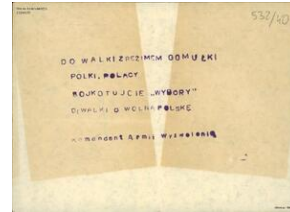 532/40
DO WALKI Z REZIMEM DOMUŁKI
POLKI, POLACY
BOJKOTUJCIE „WYBORY"
DO WALKI O WOLNĄ POLSKĘ
Komendant Armii Wyzwolenia